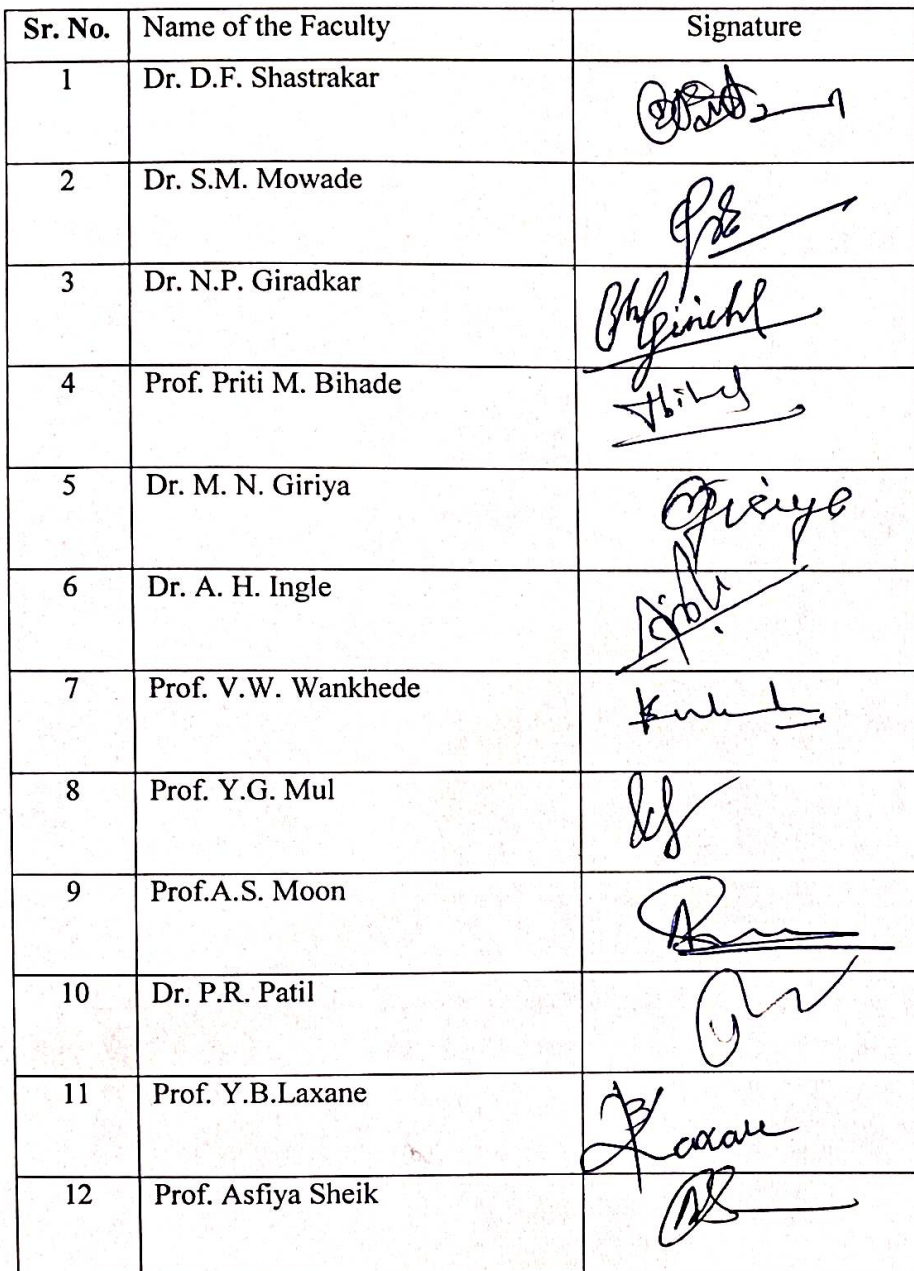 Sr. No. Name of the Faculty Signature
1 Dr. D.F. Shastrakar
2 Dr. S.M. Mowade
3 Dr. N.P. Giradkar
4 Prof. Priti M. Bihade
5 Dr. M. N. Giriya
6 Dr. A. H. Ingle
7 Prof. V.W. Wankhede
8 Prof. Y.G. Mul
9 Prof.A.S. Moon
10 Dr. P.R. Patil
11 Prof. Y.B.Laxane
12 Prof. Asfiya Sheik